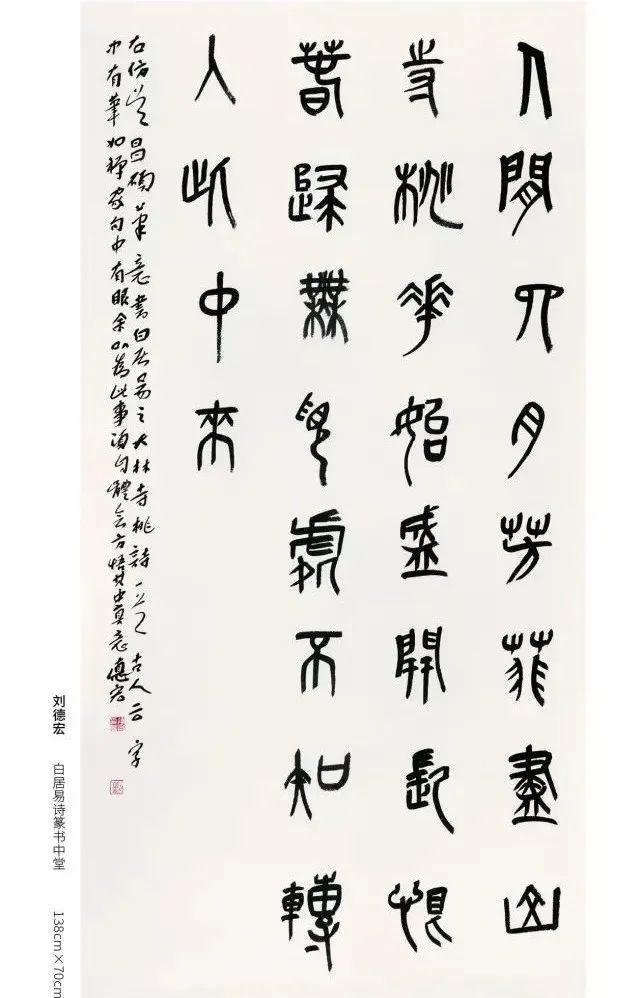 人間四月芳菲盡山
寺桃花始盛開長恨
春歸無覓處不知轉
入此中來
右仿吴昌碩筆意書白居易之大林寺桃詩一首古人云字
中有筆如禪家句中有眼余以為此事須自體會方悟其中真意德宏
刘德宏 白居易诗篆书中堂 138cm×70cm